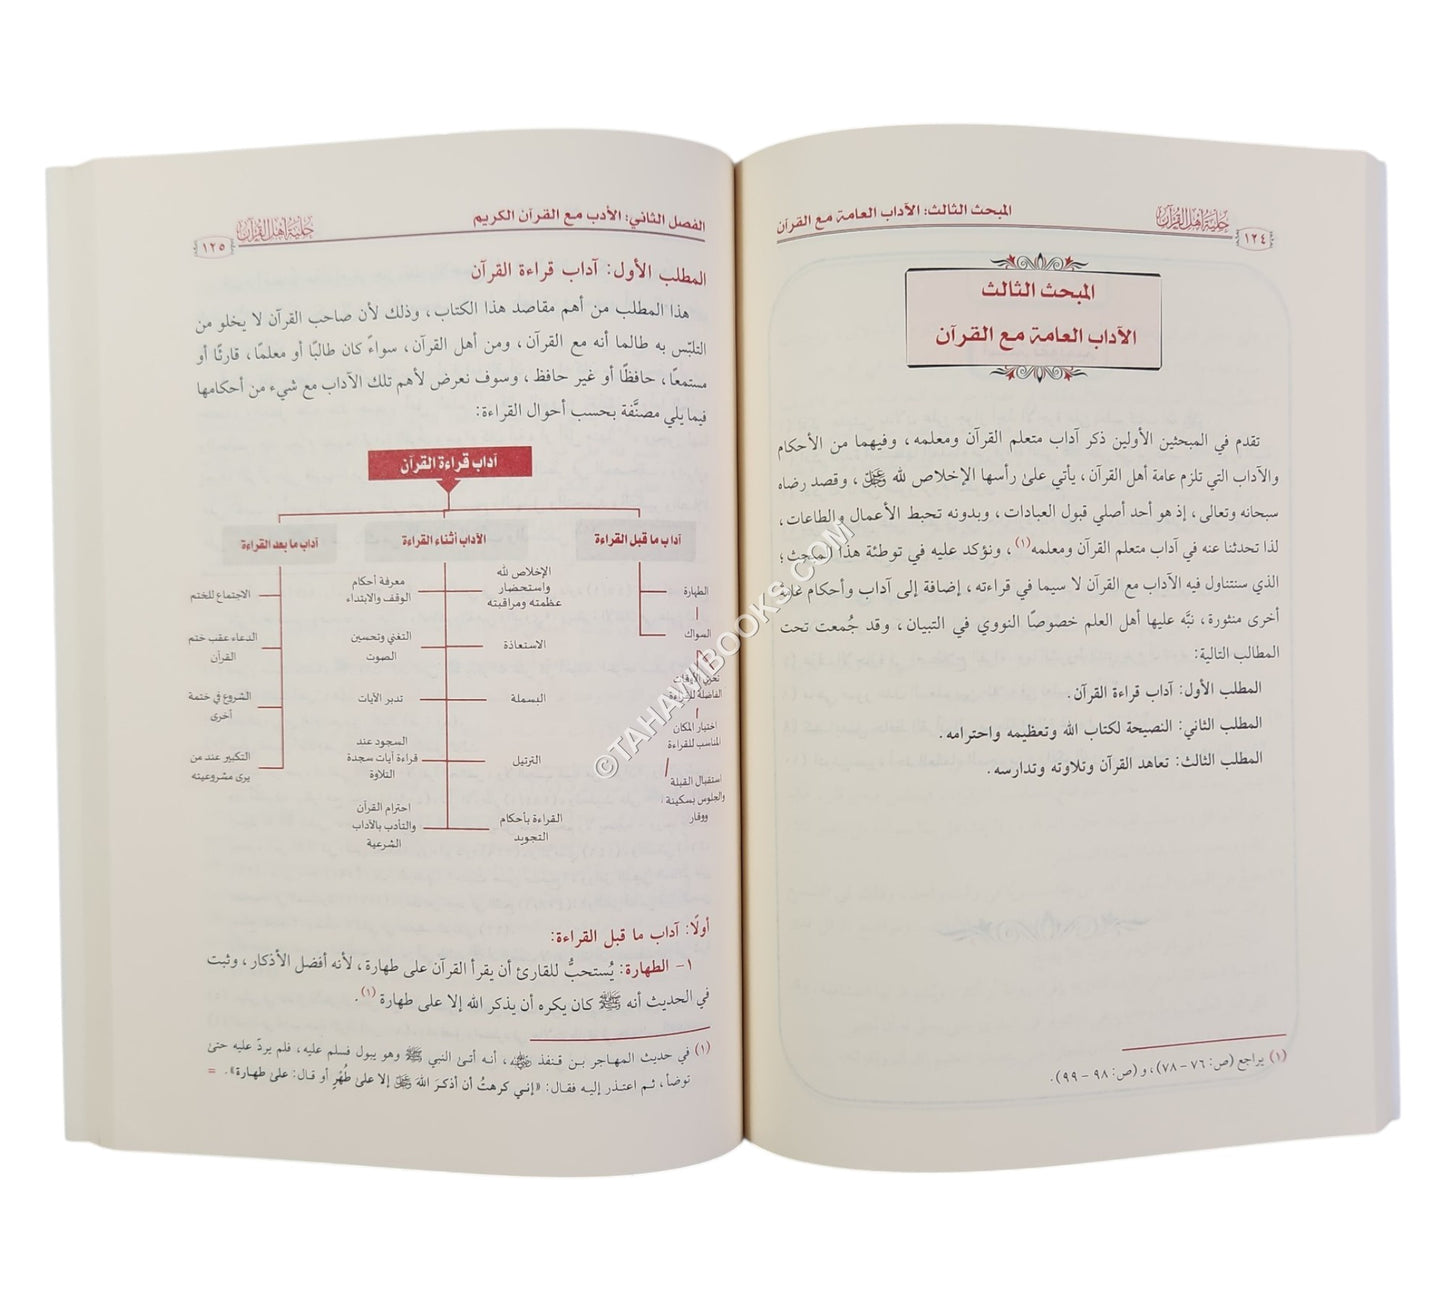 حلية أهل القرآن
١٢٤
المبحث الثالث: الآداب العامة مع القرآن
المبحث الثالث
الآداب العامة مع القرآن
تقدم في المبحثين الأولين ذكر آداب متعلم القرآن ومعلمه، وفيهما من الأحكام
والآداب التي تلزم عامة أهل القرآن، يأتي على رأسها الإخلاص لله ﷿، وقصد رضاه
سبحانه وتعالى، إذ هو أحد أصلي قبول العبادات، وبدونه تحبط الأعمال والطاعات،
لذا تحدثنا عنه في آداب متعلم القرآن ومعلمه(١)، ونؤكد عليه في توطئة هذا المبحث؛
الذي سنتناول فيه الآداب مع القرآن لا سيما في قراءته، إضافة إلى آداب وأحكام عامة
أخرى منثورة، نبَّه عليها أهل العلم خصوصًا النووي في التبيان، وقد جُمعت تحت
المطالب التالية:
المطلب الأول: آداب قراءة القرآن.
المطلب الثاني: النصيحة لكتاب الله وتعظيمه واحترامه.
المطلب الثالث: تعاهد القرآن وتلاوته وتدارسه.
(١) يراجع (ص: ٧٦ - ٧٨)، و(ص: ٩٨ - ٩٩).
الفصل الثاني: الأدب مع القرآن الكريم
حلية أهل القرآن
١٢٥
المطلب الأول: آداب قراءة القرآن
هذا المطلب من أهم مقاصد هذا الكتاب، وذلك لأن صاحب القرآن لا يخلو من
التلبّس به طالما أنه مع القرآن، ومن أهل القرآن، سواءً كان طالبًا أو معلمًا، قارئًا أو
مستمعًا، حافظًا أو غير حافظ، وسوف نعرض لأهم تلك الآداب مع شيء من أحكامها
فيما يلي مصنَّفة بحسب أحوال القراءة:
آداب قراءة القرآن
آداب ما قبل القراءة
الطهارة
السواك
تحري الأوقات
الفاضلة للقراءة
اختيار المكان
المناسب للقراءة
استقبال القبلة
والجلوس بسكينة
ووقار
الآداب أثناء القراءة
الإخلاص لله
واستحضار
عظمته ومراقبته
الاستعاذة
البسملة
الترتيل
القراءة بأحكام
التجويد
معرفة أحكام
الوقف والابتداء
التغني وتحسين
الصوت
تدبر الآيات
السجود عند
قراءة آيات سجدة
التلاوة
احترام القرآن
والتأدب بالآداب
الشرعية
آداب ما بعد القراءة
الاجتماع للختم
الدعاء عقب ختم
القرآن
الشروع في ختمة
أخرى
التكبير عند من
يرى مشروعيته
أولًا: آداب ما قبل القراءة:
١- الطهارة: يُستحبُّ للقارئ أن يقرأ القرآن على طهارة، لأنه أفضل الأذكار، وثبت
في الحديث أنه ﷺ كان يكره أن يذكر الله إلا على طهارة(١).
(١) في حديث المهاجر بن قنفذ ﵁، أنه أتى النبي ﷺ وهو يبول فسلم عليه، فلم يردّ عليه حتى
توضأ، ثم اعتذر إليه فقال: «إني كرهتُ أن أذكرَ اللهَ ﷿ إلا على طُهْرٍ أو قال: على طهارة». =
©TAHAWIBOOKS.COM